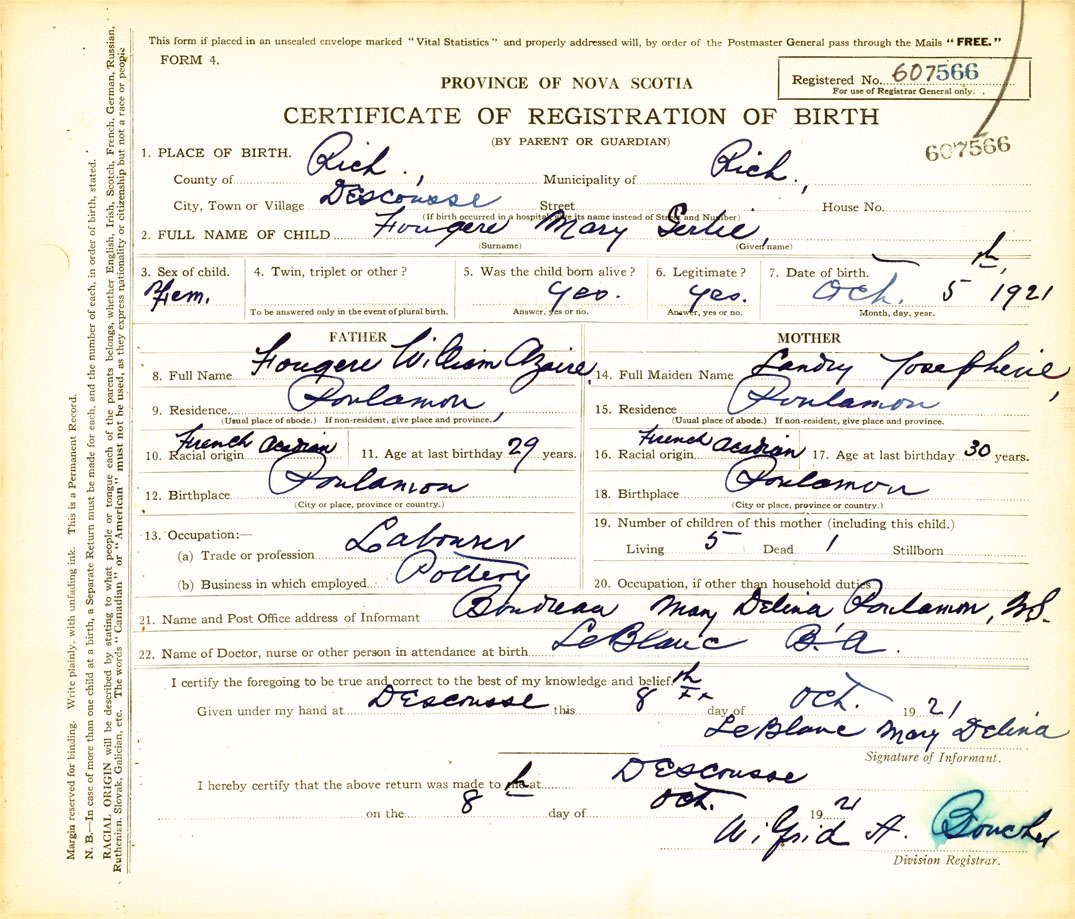 This form if placed in an unsealed envelope marked "Vital Statistics" and properly addressed will, by order of the Postmaster General pass through the Mails "FREE."
FORM 4.
Registered No. 607566
For use of Registrar General only.
PROVINCE OF NOVA SCOTIA
CERTIFICATE OF REGISTRATION OF BIRTH
(BY PARENT OR GUARDIAN)
607566
1. PLACE OF BIRTH.
County of Rich., Municipality of Rich.,
City, Town or Village Descousse Street House No.
(If birth occurred in a hospital, give its name instead of Street and Number)
2. FULL NAME OF CHILD Fougere Mary Gertie,
(Surname) (Given name)
3. Sex of child. 4. Twin, triplet or other? 5. Was the child born alive? 6. Legitimate? 7. Date of birth.
Fem. yes. yes. Oct. 5th, 1921
To be answered only in the event of plural birth. Answer, yes or no. Answer, yes or no. Month, day, year.
FATHER MOTHER
8. Full Name Fougere William Azaire, 14. Full Maiden Name Landry Josephine,
9. Residence Poulamon, 15. Residence Poulamon
(Usual place of abode.) If non-resident, give place and province. (Usual place of abode.) If non-resident, give place and province.
10. Racial origin French Acadian 11. Age at last birthday 29 years. 16. Racial origin French Acadian 17. Age at last birthday 30 years.
12. Birthplace Poulamon 18. Birthplace Poulamon
(City or place, province or country.) (City or place, province or country.)
13. Occupation:— 19. Number of children of this mother (including this child.)
(a) Trade or profession Labourer Living 5 Dead 1 Stillborn
(b) Business in which employed Pottery 20. Occupation, if other than household duties
21. Name and Post Office address of Informant Boudreau Mary Delina Poulamon, N.S.
22. Name of Doctor, nurse or other person in attendance at birth LeBlanc B. A.
I certify the foregoing to be true and correct to the best of my knowledge and belief.
Given under my hand at Descousse this 8th day of Oct. 1921
LeBlanc Mary Delina
Signature of Informant.
I hereby certify that the above return was made to me at Descousse
on the 8th day of Oct. 1921
Wilfrid A. Boucher
Division Registrar.
Margin reserved for binding. Write plainly, with unfading ink. This is a Permanent Record.
N. B.—In case of more than one child at a birth, a Separate Return must be made for each, and the number of each, in order of birth, stated.
RACIAL ORIGIN will be described by stating to what people or tongue each of the parents belongs, whether English, Irish, Scotch, French, German, Russian,
Ruthenian, Slovak, Galician, etc. The words "Canadian" or "American" must not be used, as they express nationality or citizenship but not a race or people